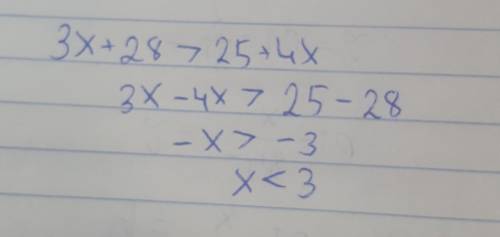 3x+28>25+4x
3x-4x>25-28
-x>-3
x<3